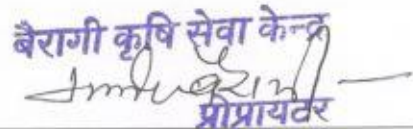 बैरागी कृषि सेवा केन्द्र
प्रोप्रायटर